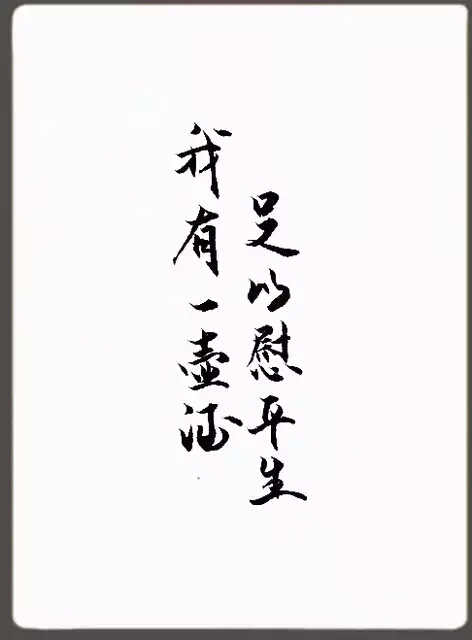 我有一壶酒
足以慰平生